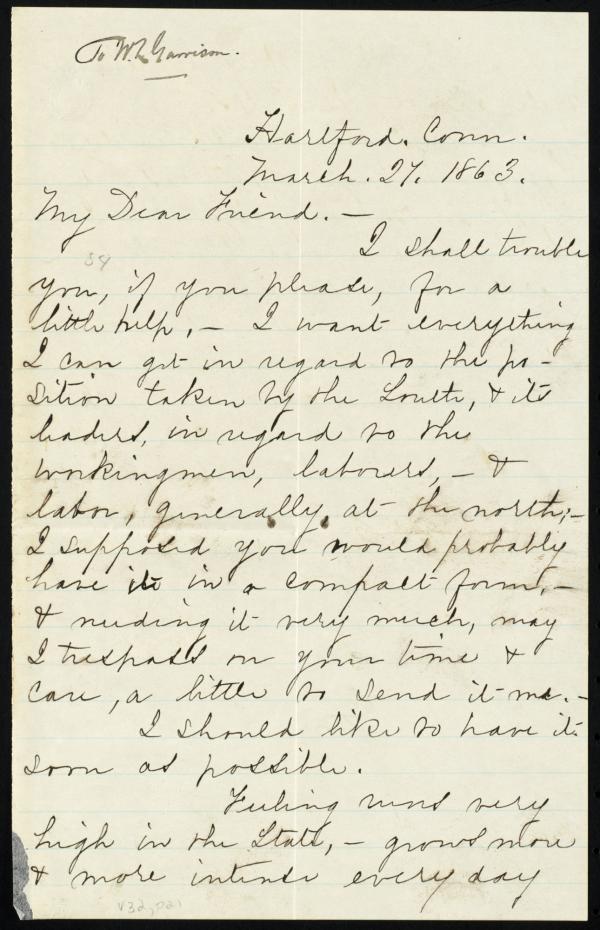 To W. L. Garrison.
Hartford. Conn.
March. 27. 1863.
My Dear Friend. —
I shall trouble
54
you, if you please, for a
little help, — I want everything
I can get in regard to the po-
sition taken by the South, & its
leaders, in regard to the
workingmen, laborers, — &
labor, generally, at the north; —
I supposed you would probably
have it in a compact form, —
& needing it very much, may
I trespass on your time &
care, a little to send it me. —
I should like to have it
soon as possible.
Feeling runs very
high in the State, — grows more
& more intense every day
v32, p21